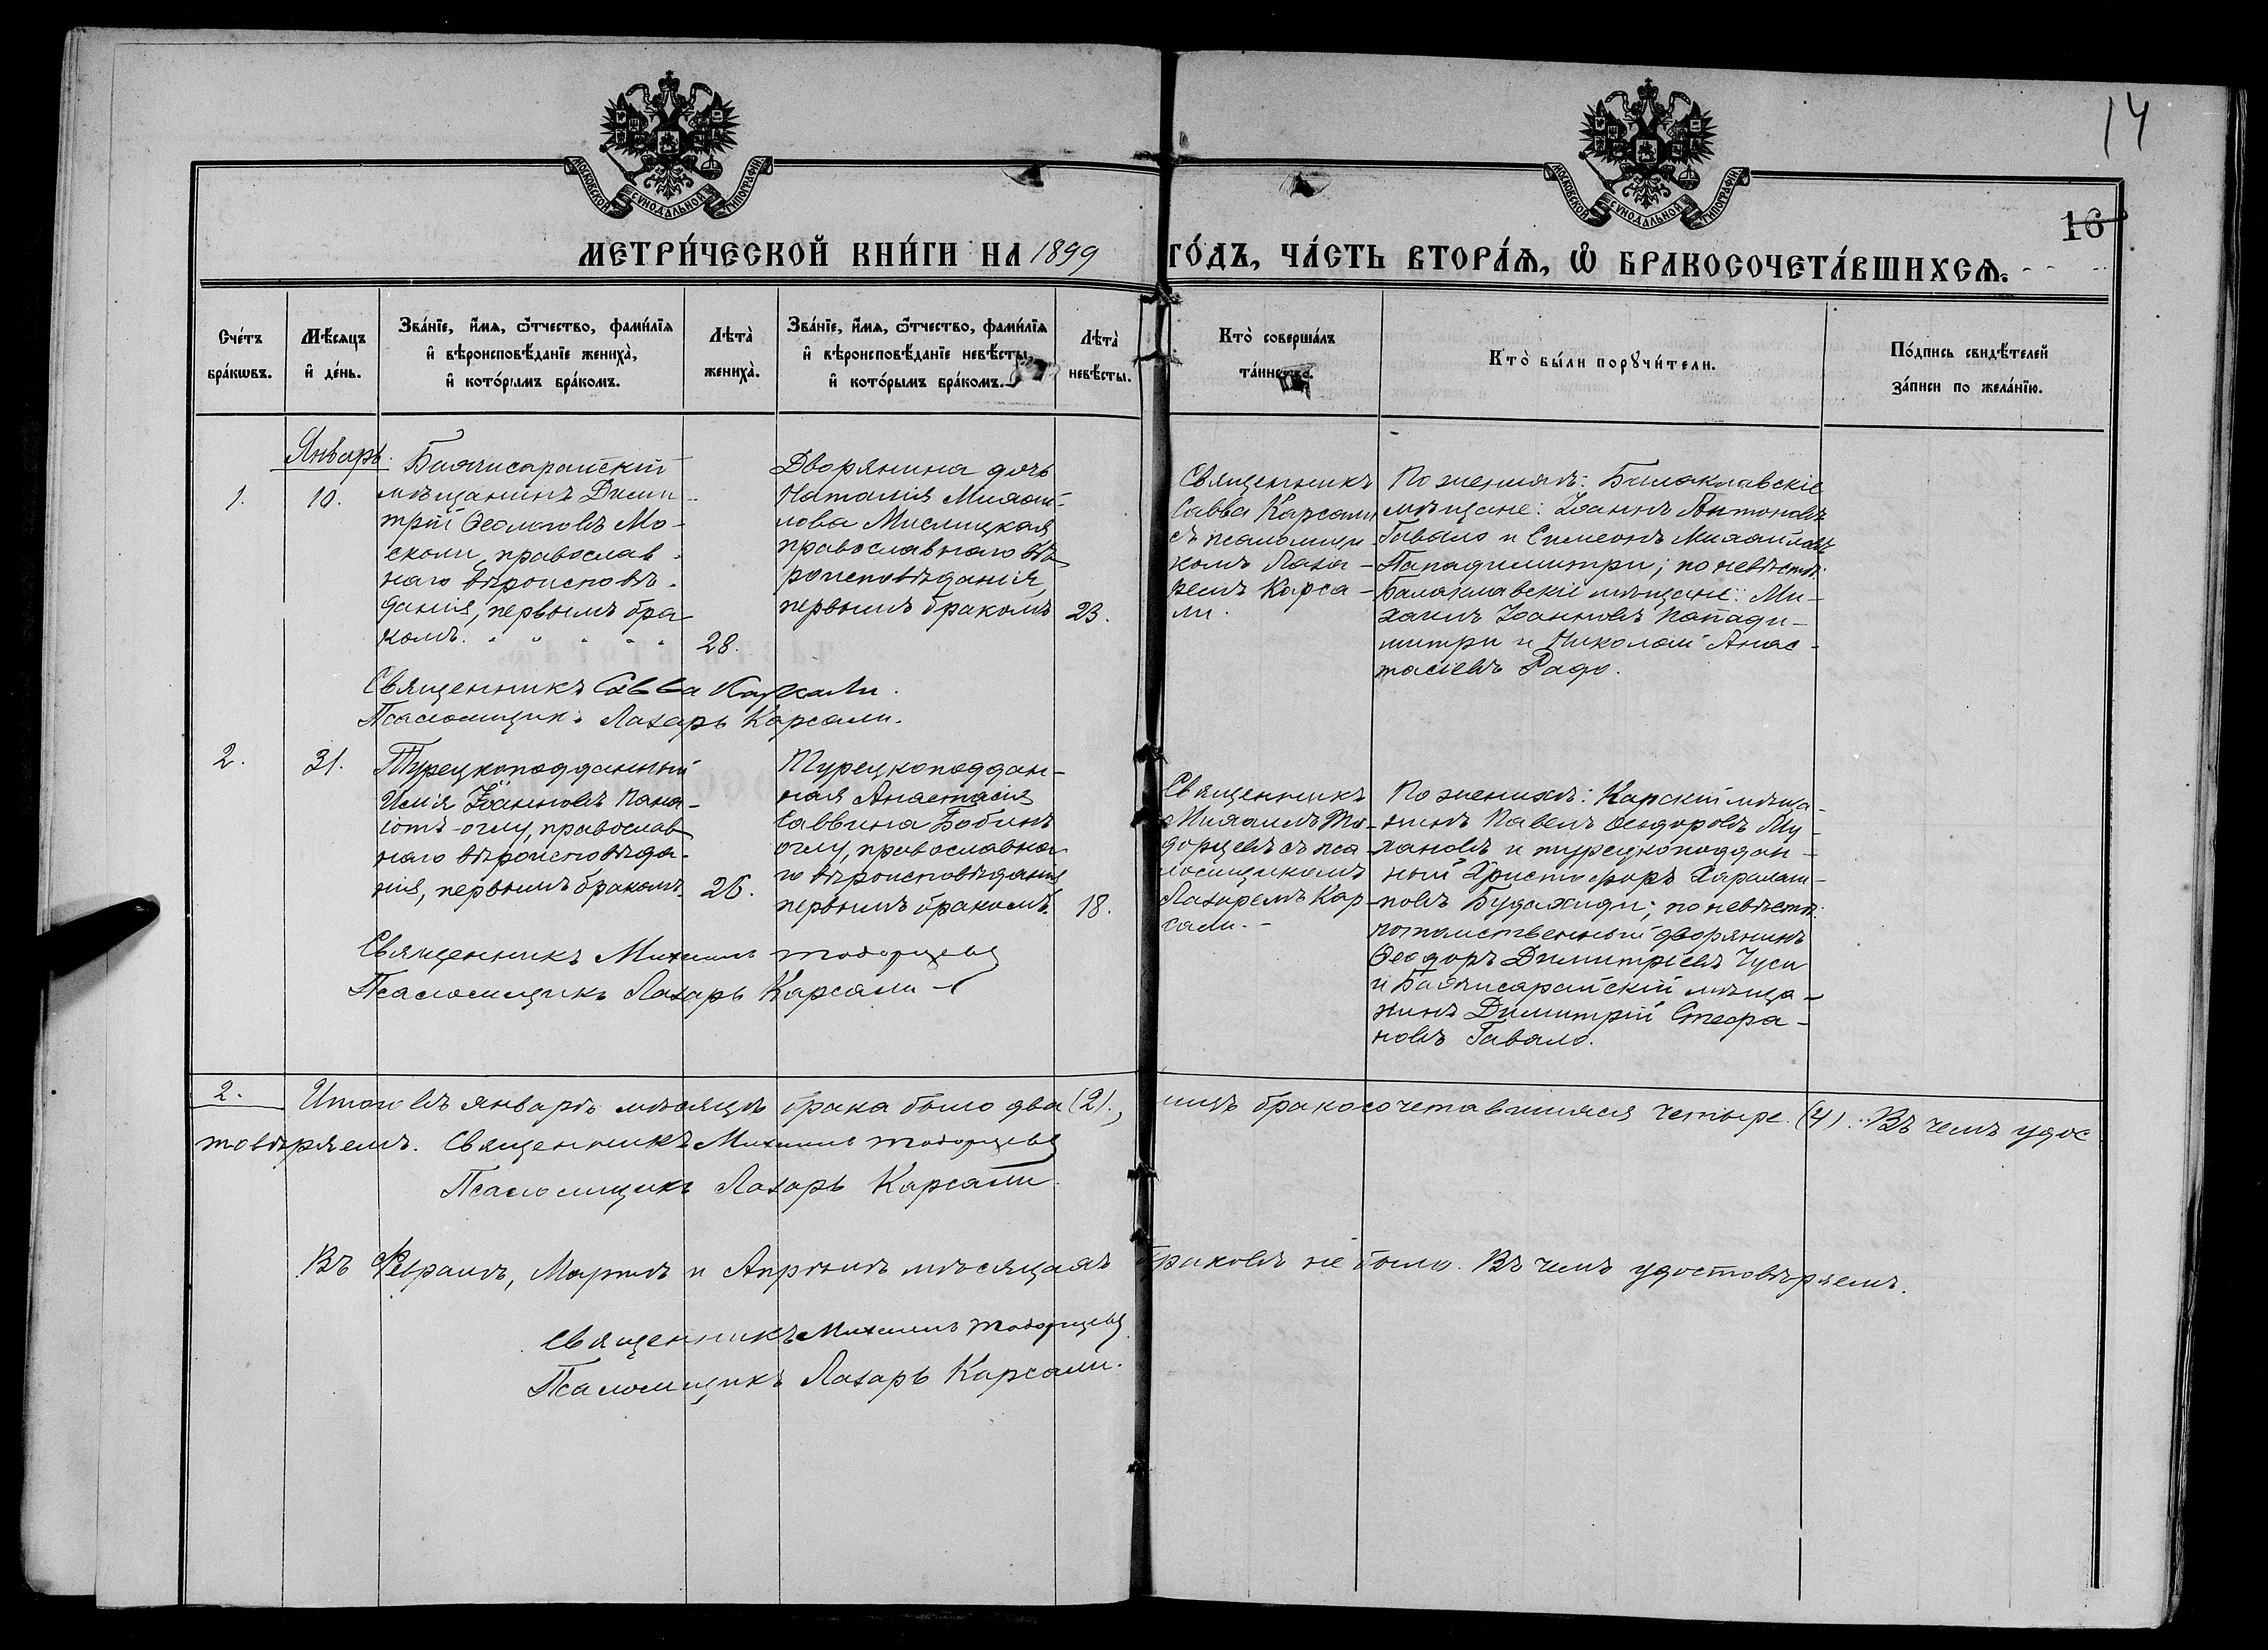 14
16
МОСКОВСКОЙ СѴНОДАЛЬНОЙ ТИПОГРАФІИ
МОСКОВСКОЙ СѴНОДАЛЬНОЙ ТИПОГРАФІИ
МЕТРИ́ЧЕСКОЙ КНИ́ГИ НА 1899 ГО́ДЪ, ЧА́СТЬ ВТОРА́Ѧ, Ѽ БРАКОСОЧЕТА́ВШИХСѦ.
Сче́тъ
бра́кѡвъ.
Мѣ́сяцъ
и҆ де́нь.
Зва́нїе, и҆́мѧ, ѻ҆́тчество, фами́лїѧ
и҆ вѣроисповѣ́данїе жениха̀,
и҆ кото́рымъ бра́комъ.
Лѣта̀
жениха̀.
Зва́нїе, и҆́мѧ, ѻ҆́тчество, фами́лїѧ
и҆ вѣроисповѣ́данїе невѣ́сты,
и҆ кото́рымъ бра́комъ.
Лѣта̀
невѣ́сты.
Кто̀ соверша́лъ
та́инство.
Кто̀ бы́ли порꙋчи́тели.
По́дпись свидѣ́телей
за́писи по жела́нїю.
Январь
1.
10.
Бахчисарайскій
мѣщанинъ Дими-
трій Ѳеологовъ Мо-
сколи, православ-
наго вѣроисповѣ-
данія, первымъ бра
комъ.
28.
Дворянина дочь
Наталія Михаи-
лова Мислицкая
православнаго вѣ
роисповѣданія,
первымъ бракомъ
23.
Священникъ
Савва Карсали
съ псаломщи-
комъ Лаза-
ремъ Карса-
ли.
По женихѣ: Балаклавскіе
мѣщане: Іоаннъ Антоновъ
Гавало и Симеонъ Михайловъ
Пападимитри; по невѣстѣ:
Балаклавскіе мѣщане: Ми-
хаилъ Іоанновъ Папади-
митри и Николай Анас-
тасіевъ Радо.
Священникъ Савва Карсали.
Псаломщикъ Лазарь Карсали.
2.
31.
Турецкоподданный
Илія Іоанновъ Пана-
іотъ-оглу, православ
наго вѣроисповѣда-
нія, первымъ бракомъ.
26.
Турецкоподдан-
ная Анастасія
Саввина Бобинъ
оглу, православна
го вѣроисповѣданія
первымъ бракомъ.
18.
Священникъ
Михаилъ То-
дорцевъ съ пса-
ломщикомъ
Лазаремъ Кар-
сали.-
По женихѣ: Карскій мѣща-
нинъ Павелъ Ѳеодоровъ Му-
хановъ и турецкоподдан-
ный Христофоръ Харалам-
повъ Будахиди; по невѣстѣ:
потомственный дворянинъ
Ѳеодоръ Димитріевъ Чуси
и Бахчисарайскій мѣща-
нинъ Димитрій Стефа-
новъ Гавало.
Священникъ Михаилъ Тодорцевъ
Псаломщикъ Лазарь Карсали
2. Итого въ январѣ мѣсяцѣ брака было два (2)., ихъ бракосочетавшихся четыре. (4). Въ чемъ удос
товѣряемъ. Священникъ Михаилъ Тодорцевъ
Псаломщикъ Лазарь Карсали.
Въ Февралѣ, Мартѣ и Апрѣлѣ мѣсяцахъ браковъ не было. Въ чемъ удостовѣряемъ.
Священникъ Михаилъ Тодорцевъ
Псаломщикъ Лазарь Карсали.